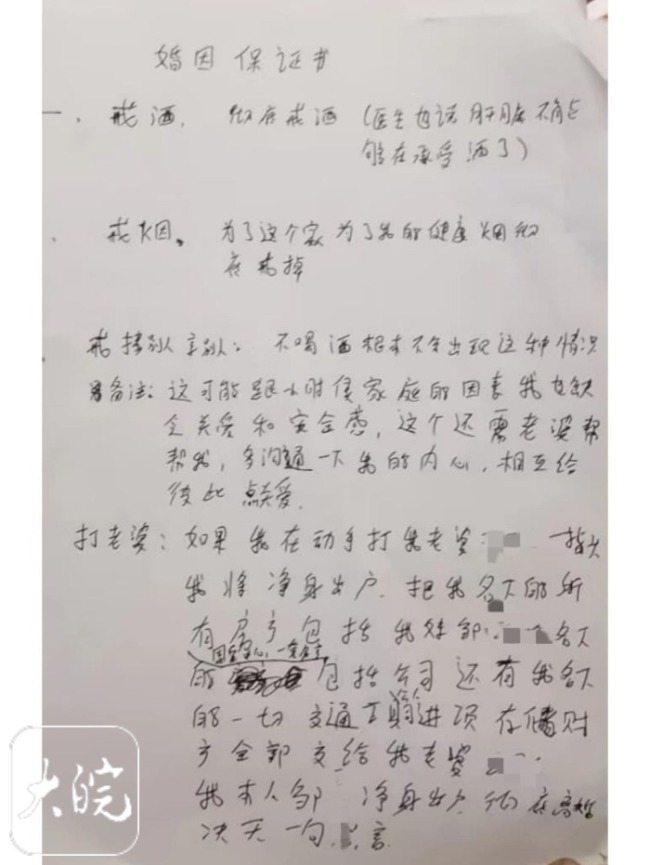 婚因保证书
一、戒酒，彻底戒酒（医生也说肝脏不能
够在承受酒了）
、戒烟。为了这个家为了我的健康烟彻
底戒掉
戒猜疑 不喝酒根本不会出现这种情况
备注：这可能跟小时侯家庭的因素我也缺
乏关爱和安全感，这个还需老婆帮
帮我，多沟通一下我的内心，相互给
彼此点关爱
打老婆：如果我在动手打我老婆
我将净身出户，把我名下的所
有房产包括我妹
名下
的 包括公司还有我名下
的一切交通工具 进项存储财
产全部交给我老婆
我本人 净身出户
决无一句 言
大皖